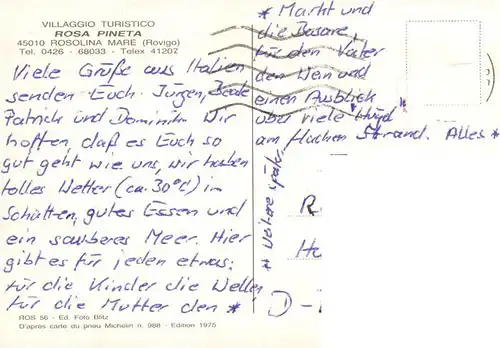 VILLAGGIO TURISTICO
ROSA PINETA
45010 ROSOLINA MARE (Rovigo)
Tel. 0426 - 68033 - Telex 41202
Viele Grüße aus Italien
senden Euch Jürgen, Beate
Patrick und Dominik. Wir
hoffen, daß es Euch so
gut geht wie uns, wir haben
tolles Wetter (ca. 30°C) im
Schatten, gutes Essen und
ein sauberes Meer. Hier
gibt es für jeden etwas:
für die Kinder die Wellen
für die Mutter den *
* Markt und
die Basare,
für den Vater
den Wein und
einen Ausblick
über viele
am flachen Strand. Alles *
* Weitere später.
R
H
D -
ROS 56 - Ed. Foto Blitz
D'après carte du pneu Michelin n. 988 - Edition 1975